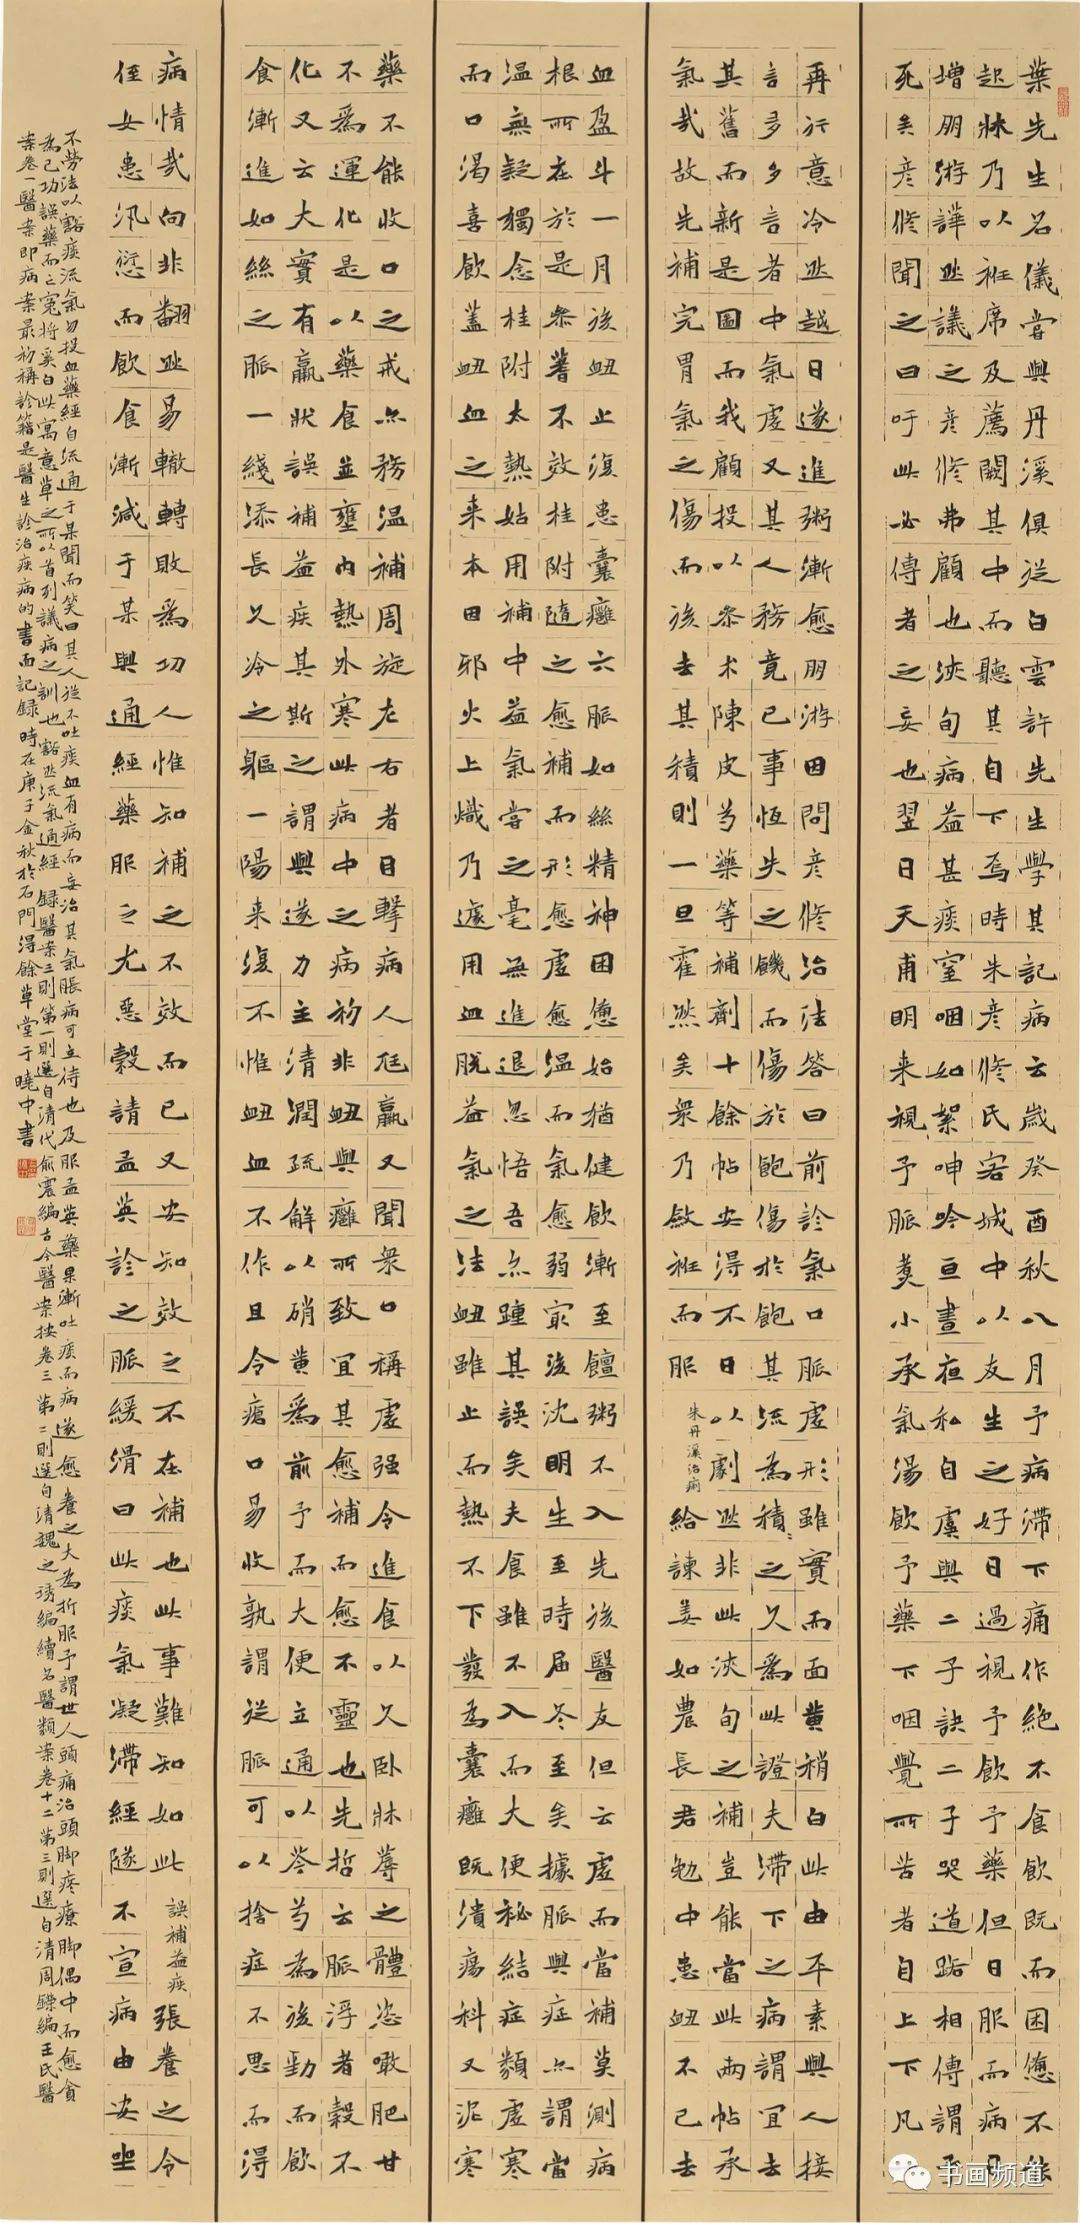 葉先生名儀嘗與丹溪俱從白雲許先生學其記病云歲癸酉秋八月予病滯下痛作絕不食飲既而困憊不能
起牀乃以袵席及薦闕其中而聽其自下焉時朱彥修氏客城中以友生之好日過視予飲予藥但日服而病日
增朋游譁然議之彥修弗顧也浹旬病益甚痰窒咽如絮呻吟亘晝夜私自虞與二子訣二子哭道路相傳謂予
死矣彥修聞之曰吁此必傳者之妄也翌日天甫明来視予脈煑小承氣湯飲予藥下咽覺所苦者自上下凡
再行意冷然越日遂進粥漸愈朋游因問彥修治法答曰前診氣口脈虛形雖實而面黄稍白此由平素與人接
言多多言者中氣虛又其人務竟已事恆失之饑而傷於飽傷於飽其流為積積之久為此證夫滯下之病謂宜去
其舊而新是圖而我顧投以參术陳皮芍藥等補劑十餘帖安得不日以劇然非此浹旬之補豈能當此兩帖承
氣哉故先補完胃氣之傷而後去其積則一旦霍然矣衆乃斂袵而服 朱丹溪治痢 給諫姜如農長君勉中患衄不已去
血盈斗一月後衄止復患囊癰六脈如絲精神困憊始猶健飲漸至饘粥不入先後醫友但云虛而當補莫測病
根所在於是參蓍不效桂附隨之愈補而形愈虛愈溫而氣愈弱㝡後沈明生至時届冬至矣據脈與症亦謂當
温無疑獨念桂附太熱姑用補中益氣嘗之毫無進退忽悟吾亦踵其誤矣夫食雖不入而大便秘結症類虛寒
而口渴喜飲蓋衄血之来本因邪火上熾乃遽用血脫益氣之法衄雖止而熱不下發為囊癰既潰瘍科又泥寒
藥不能收口之戒亦務温補周旋左右者目擊病人尫羸又聞衆口稱虛强令進食以久卧牀蓐之體恣噉肥甘
不為運化是以藥食並壅內熱外寒此病中之病初非衄與癰所致宜其愈補而愈不靈也先哲云脈浮者穀不
化又云大實有羸狀誤補益疾其斯之謂與遂力主清潤疏解以硝黄為前予而大便立通以芩芍為後勁而飲
食漸進如絲之脈一綫添長久冷之軀一陽来復不惟衄血不作且令瘡口易收孰謂從脈可以捨症不思而得
病情哉向非翻然易轍轉敗爲功人惟知補之不效而已又安知效之不在補也此事難知如此 誤補益疾 張養之令
侄女患汛愆而飲食漸減于某與通經藥服之尤惡穀請孟英診之脈緩滑曰此痰氣凝滯經隧不宣病由安坐
不勞法以豁痰流氣勿投血藥經自流通于某聞而笑曰其人從不吐痰血有病而妄治其氣脹病可立待也及服孟英藥果漸吐痰而病遂愈養之大為折服予謂世人頭痛治頭脚疼療脚偶中而愈貪
為已功誤藥而之寃將奚白此寓意草之所以首列議病之訓也豁然流氣通經 録醫案三則第一則選自清代俞震編古今醫案按卷三第二則選自清魏之琇編續名醫類案卷十二第三則選自清周鑅編王氏醫
案卷一醫案即病案最初稱診籍是醫生診治疾病的書面記録時在庚子金秋於石門得餘草堂于曉中書
书画频道